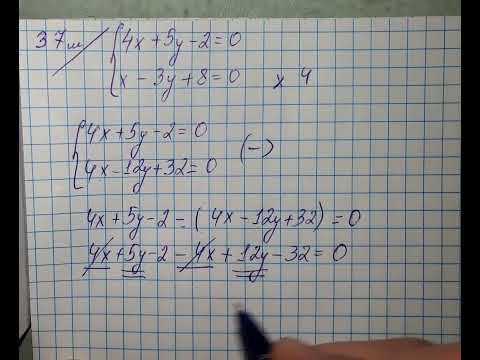 37 м/ { 4x + 5y - 2 = 0
x - 3y + 8 = 0 x 4
{ 4x + 5y - 2 = 0
4x - 12y + 32 = 0 (-)
4x + 5y - 2 - ( 4x - 12y + 32 ) = 0
4x + 5y - 2 - 4x + 12y - 32 = 0